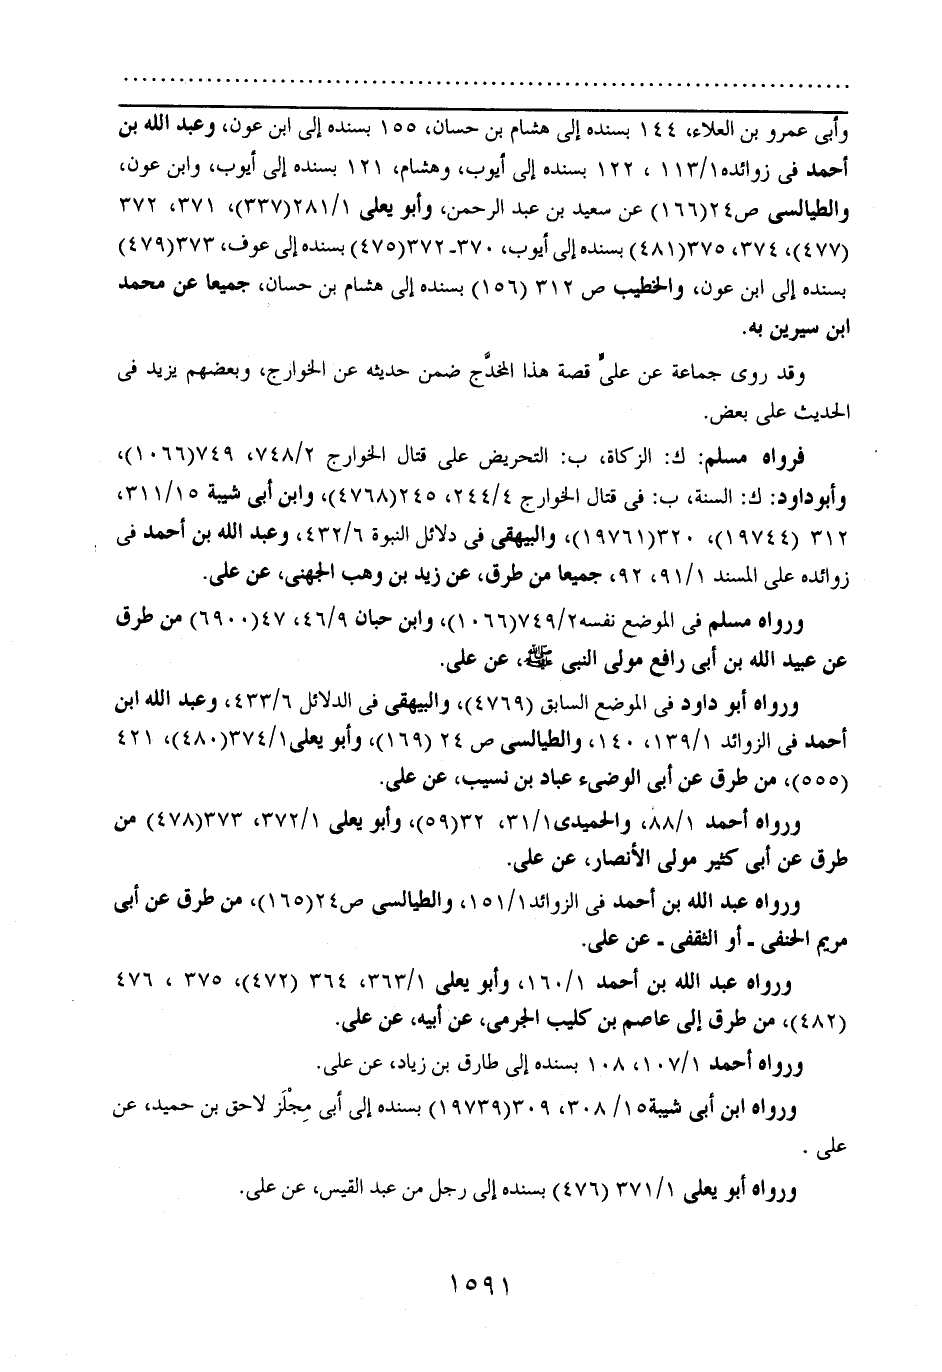 وأبى عمرو بن العلاء، ١٤٤ بسنده إلى هشام بن حسان، ١٥٥ بسنده إلى ابن عون، وعبد الله بن
أحمد فى زوائده١١٣/١ ، ١٢٢ بسنده إلى أيوب، وهشام، ١٢١ بسنده إلى أيوب، وابن عون،
والطيالسى ص٢٤(١٦٦) عن سعيد بن عبد الرحمن، وأبو يعلى ٢٨١/١(٣٣٧)، ٣٧١، ٣٧٢
(٤٧٧)، ٣٧٤، ٣٧٥(٤٨١) بسنده إلى أيوب، ٣٧٠ـ ٣٧٢(٤٧٥) بسنده إلى عوف، ٣٧٣(٤٧٩)
بسنده إلى ابن عون، والخطيب ص ٣١٢ (١٥٦) بسنده إلى هشام بن حسان، جميعا عن محمد
ابن سيرين به.
وقد روى جماعة عن علىٍّ قصة هذا المخدَّج ضمن حديثه عن الخوارج، وبعضهم يزيد فى
الحديث على بعض.
فرواه مسلم: ك: الزكاة، ب: التحريض على قتال الخوارج ٧٤٨/٢، ٧٤٩(١٠٦٦)،
وأبوداود: ك: السنة، ب: فى قتال الخوارج ٢٤٤/٤، ٢٤٥(٤٧٦٨)، وابن أبى شيبة ٣١١/١٥،
٣١٢ (١٩٧٤٤)، ٣٢٠(١٩٧٦١)، والبيهقى فى دلائل النبوة ٤٣٢/٦، وعبد الله بن أحمد فى
زوائده على المسند ٩١/١، ٩٢، جميعا من طرق، عن زيد بن وهب الجهنى، عن على.
ورواه مسلم فى الموضع نفسه٧٤٩/٢(١٠٦٦)، وابن حبان ٤٦/٩، ٤٧(٦٩٠٠) من طرق
عن عبيد الله بن أبى رافع مولى النبى ﷺ، عن على.
ورواه أبو داود فى الموضع السابق (٤٧٦٩)، والبيهقى فى الدلائل ٤٣٣/٦، وعبد الله ابن
أحمد فى الزوائد ١٣٩/١، ١٤٠، والطيالسى ص ٢٤ (١٦٩)، وأبو يعلى٣٧٤/١(٤٨٠)، ٤٢١
(٥٥٥)، من طرق عن أبى الوضىء عباد بن نسيب، عن على.
ورواه أحمد ٨٨/١، والحميدى٣١/١، ٣٢(٥٩)، وأبو يعلى ٣٧٢/١، ٣٧٣(٤٧٨) من
طرق عن أبى كثير مولى الأنصار، عن على.
ورواه عبد الله بن أحمد فى الزوائد١٥١/١، والطيالسى ص٢٤(١٦٥)، من طرق عن أبى
مريم الحنفى ـ أو الثقفى ـ عن على.
ورواه عبد الله بن أحمد ١٦٠/١، وأبو يعلى ٣٦٣/١، ٣٦٤ (٤٧٢)، ٣٧٥ ، ٤٧٦
(٤٨٢)، من طرق إلى عاصم بن كليب الجرمى، عن أبيه، عن على.
ورواه أحمد ١٠٧/١، ١٠٨ بسنده إلى طارق بن زياد، عن على.
ورواه ابن أبى شيبة١٥/ ٣٠٨، ٣٠٩(١٩٧٣٩) بسنده إلى أبى مِجْلَز لاحق بن حميد، عن
على .
ورواه أبو يعلى ٣٧١/١ (٤٧٦) بسنده إلى رجل من عبد القيس، عن على.
١٥٩١